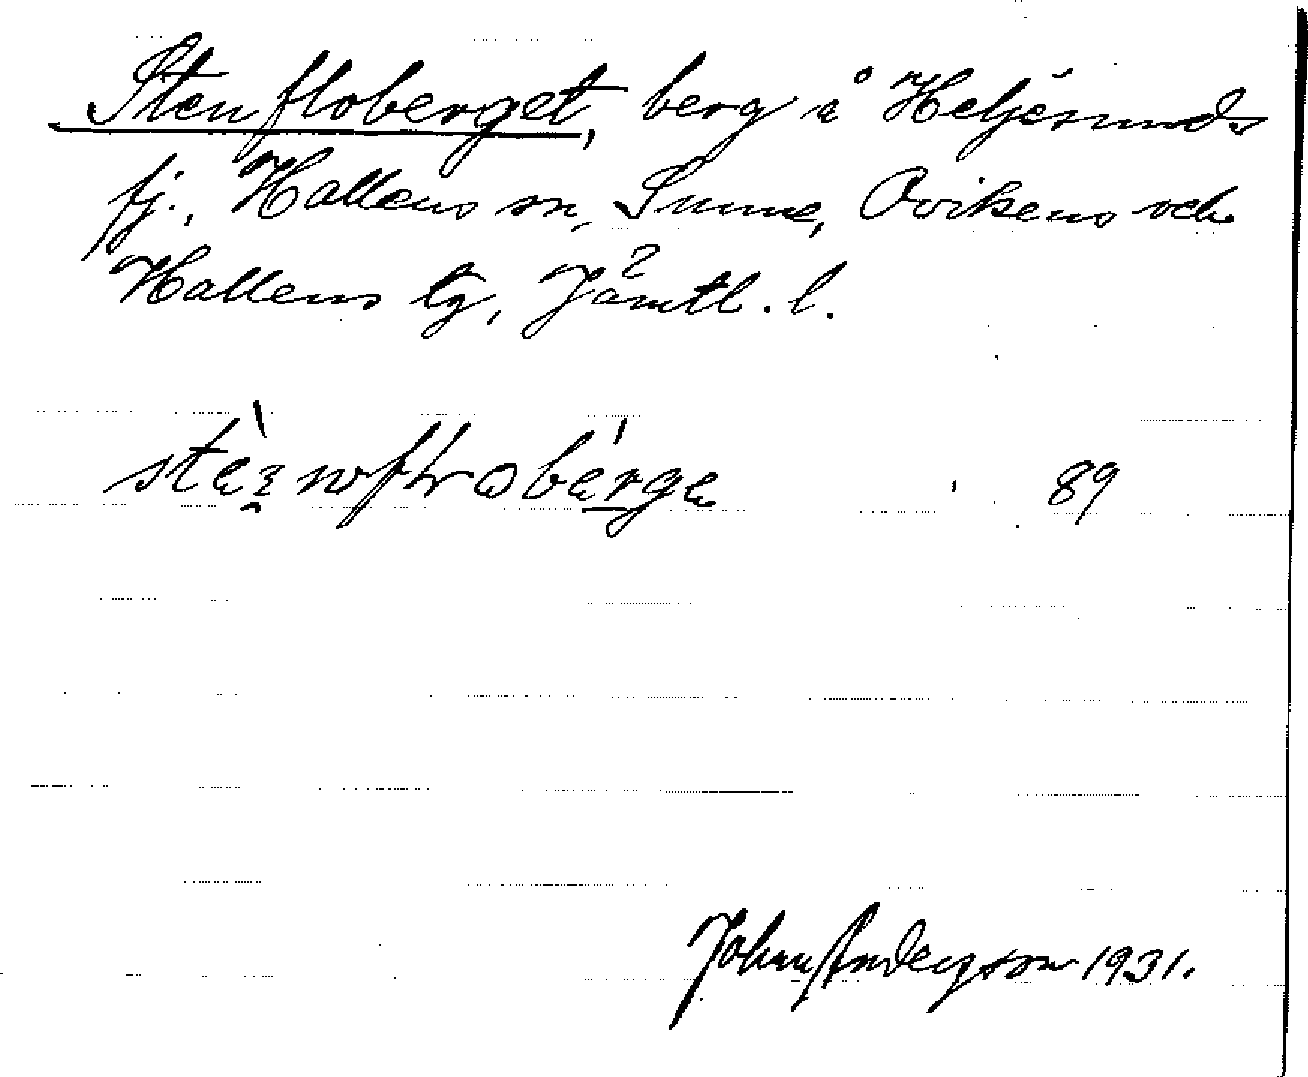 Stenfloberget, berg i Heljesunds
fj., Hallens sn, Sunne, Ovikens och
Hallens tg, Jämtl. l.
89
John Anderson 1931.